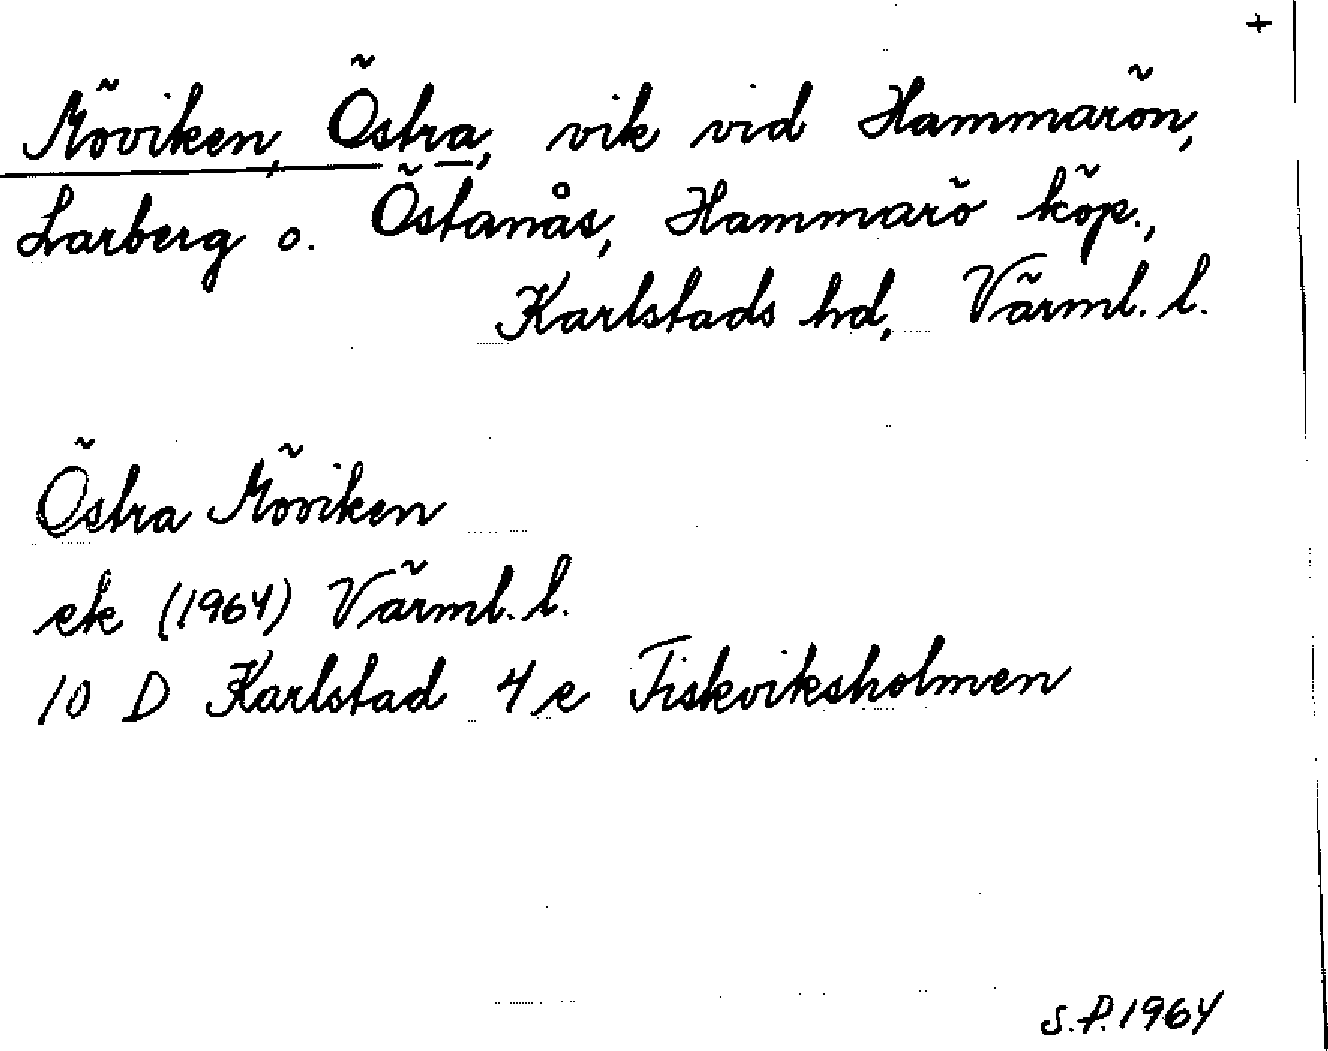 +
Möviken, Östra, vik vid Hammarön,
Larberg o. Östanås, Hammarö köp.,
Karlstads hd, Värml. l.
Östra Möviken
ek (1964) Värml. l.
10 D Karlstad 4 e Fiskviksholmen
S.P. 1964